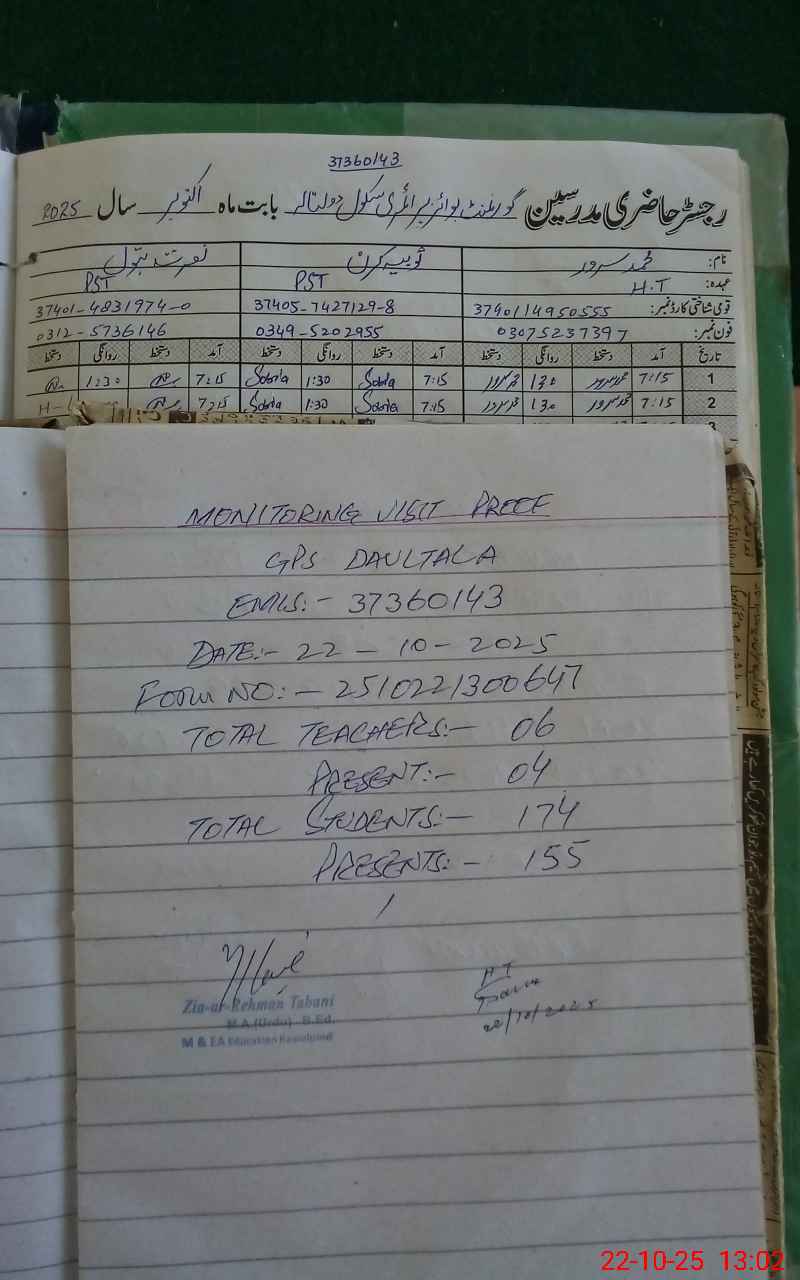 37360143
رجسٹر حاضری مدرسین گورنمنٹ بوائز پرائمری سکول دولتالہ بابت ماہ اکتوبر سال 2025
نام: محمد سرور ثوبیہ کرن نصرت بتول
عہدہ: H.T PST PST
قومی شناختی کارڈ نمبر: 3740114950555 37405-7427129-8 37401-4831974-0
فون نمبر: 03075237397 0349-5202955 0312-5736146
تاریخ آمد دستخط روانگی دستخط آمد دستخط روانگی دستخط آمد دستخط روانگی دستخط
1 7:15 محمد سرور 1:30 محمد سرور 7:15 1:30 7:15 1:30
2 7:15 محمد سرور 1:30 محمد سرور 7:15 1:30 7:15
3
MONITORING VISIT PROOF
GPS DAULTALA
EMIS:- 37360143
DATE:- 22-10-2025
FORM NO:- 2510221300647
TOTAL TEACHERS:- 06
PRESENT:- 04
TOTAL STUDENTS:- 174
PRESENTS:- 155
Zia-ur-Rehman Tabani
M.A (Urdu) B.Ed.
M & EA Education Rawalpindi
HT
22/10/2025
22-10-25 13:02